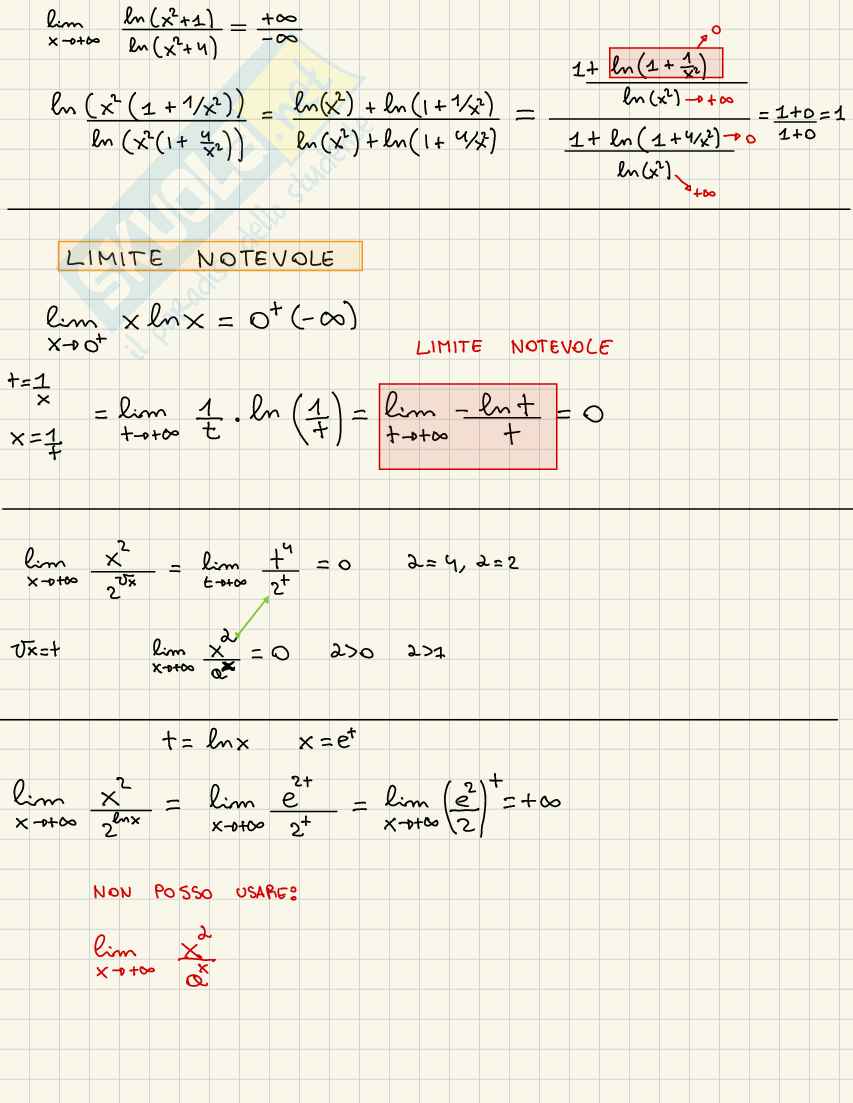 lim x→+∞ ln(x²+1)/ln(x²+4) = +∞/-∞
ln(x²(1+1/x²))/ln(x²(1+4/x²)) = (ln(x²)+ln(1+1/x²))/(ln(x²)+ln(1+4/x²)) = (1+ ln(1+1/x²)→0 / ln(x²)→+∞)/(1+ln(1+4/x²)→0 / ln(x²)→+∞) = (1+0)/(1+0) = 1
SKUOLA.net
il paradiso dello studente
LIMITE NOTEVOLE
lim x→0⁺ x ln x = 0⁺(-∞)
LIMITE NOTEVOLE
t=1/x
x=1/t
= lim t→+∞ 1/t · ln(1/t) = lim t→+∞ -ln t/t = 0
lim x→+∞ x²/2^√x = lim t→+∞ t⁴/2^t = 0 2=4, 2=2
√x=t lim x→+∞ x²/a^x = 0 2>0 2>1
t = ln x x = e^t
lim x→+∞ x²/2^(ln x) = lim x→+∞ e^(2t)/2^t = lim x→+∞ (e²/2)^t = +∞
NON POSSO USARE:
lim x→+∞ x²/a^x